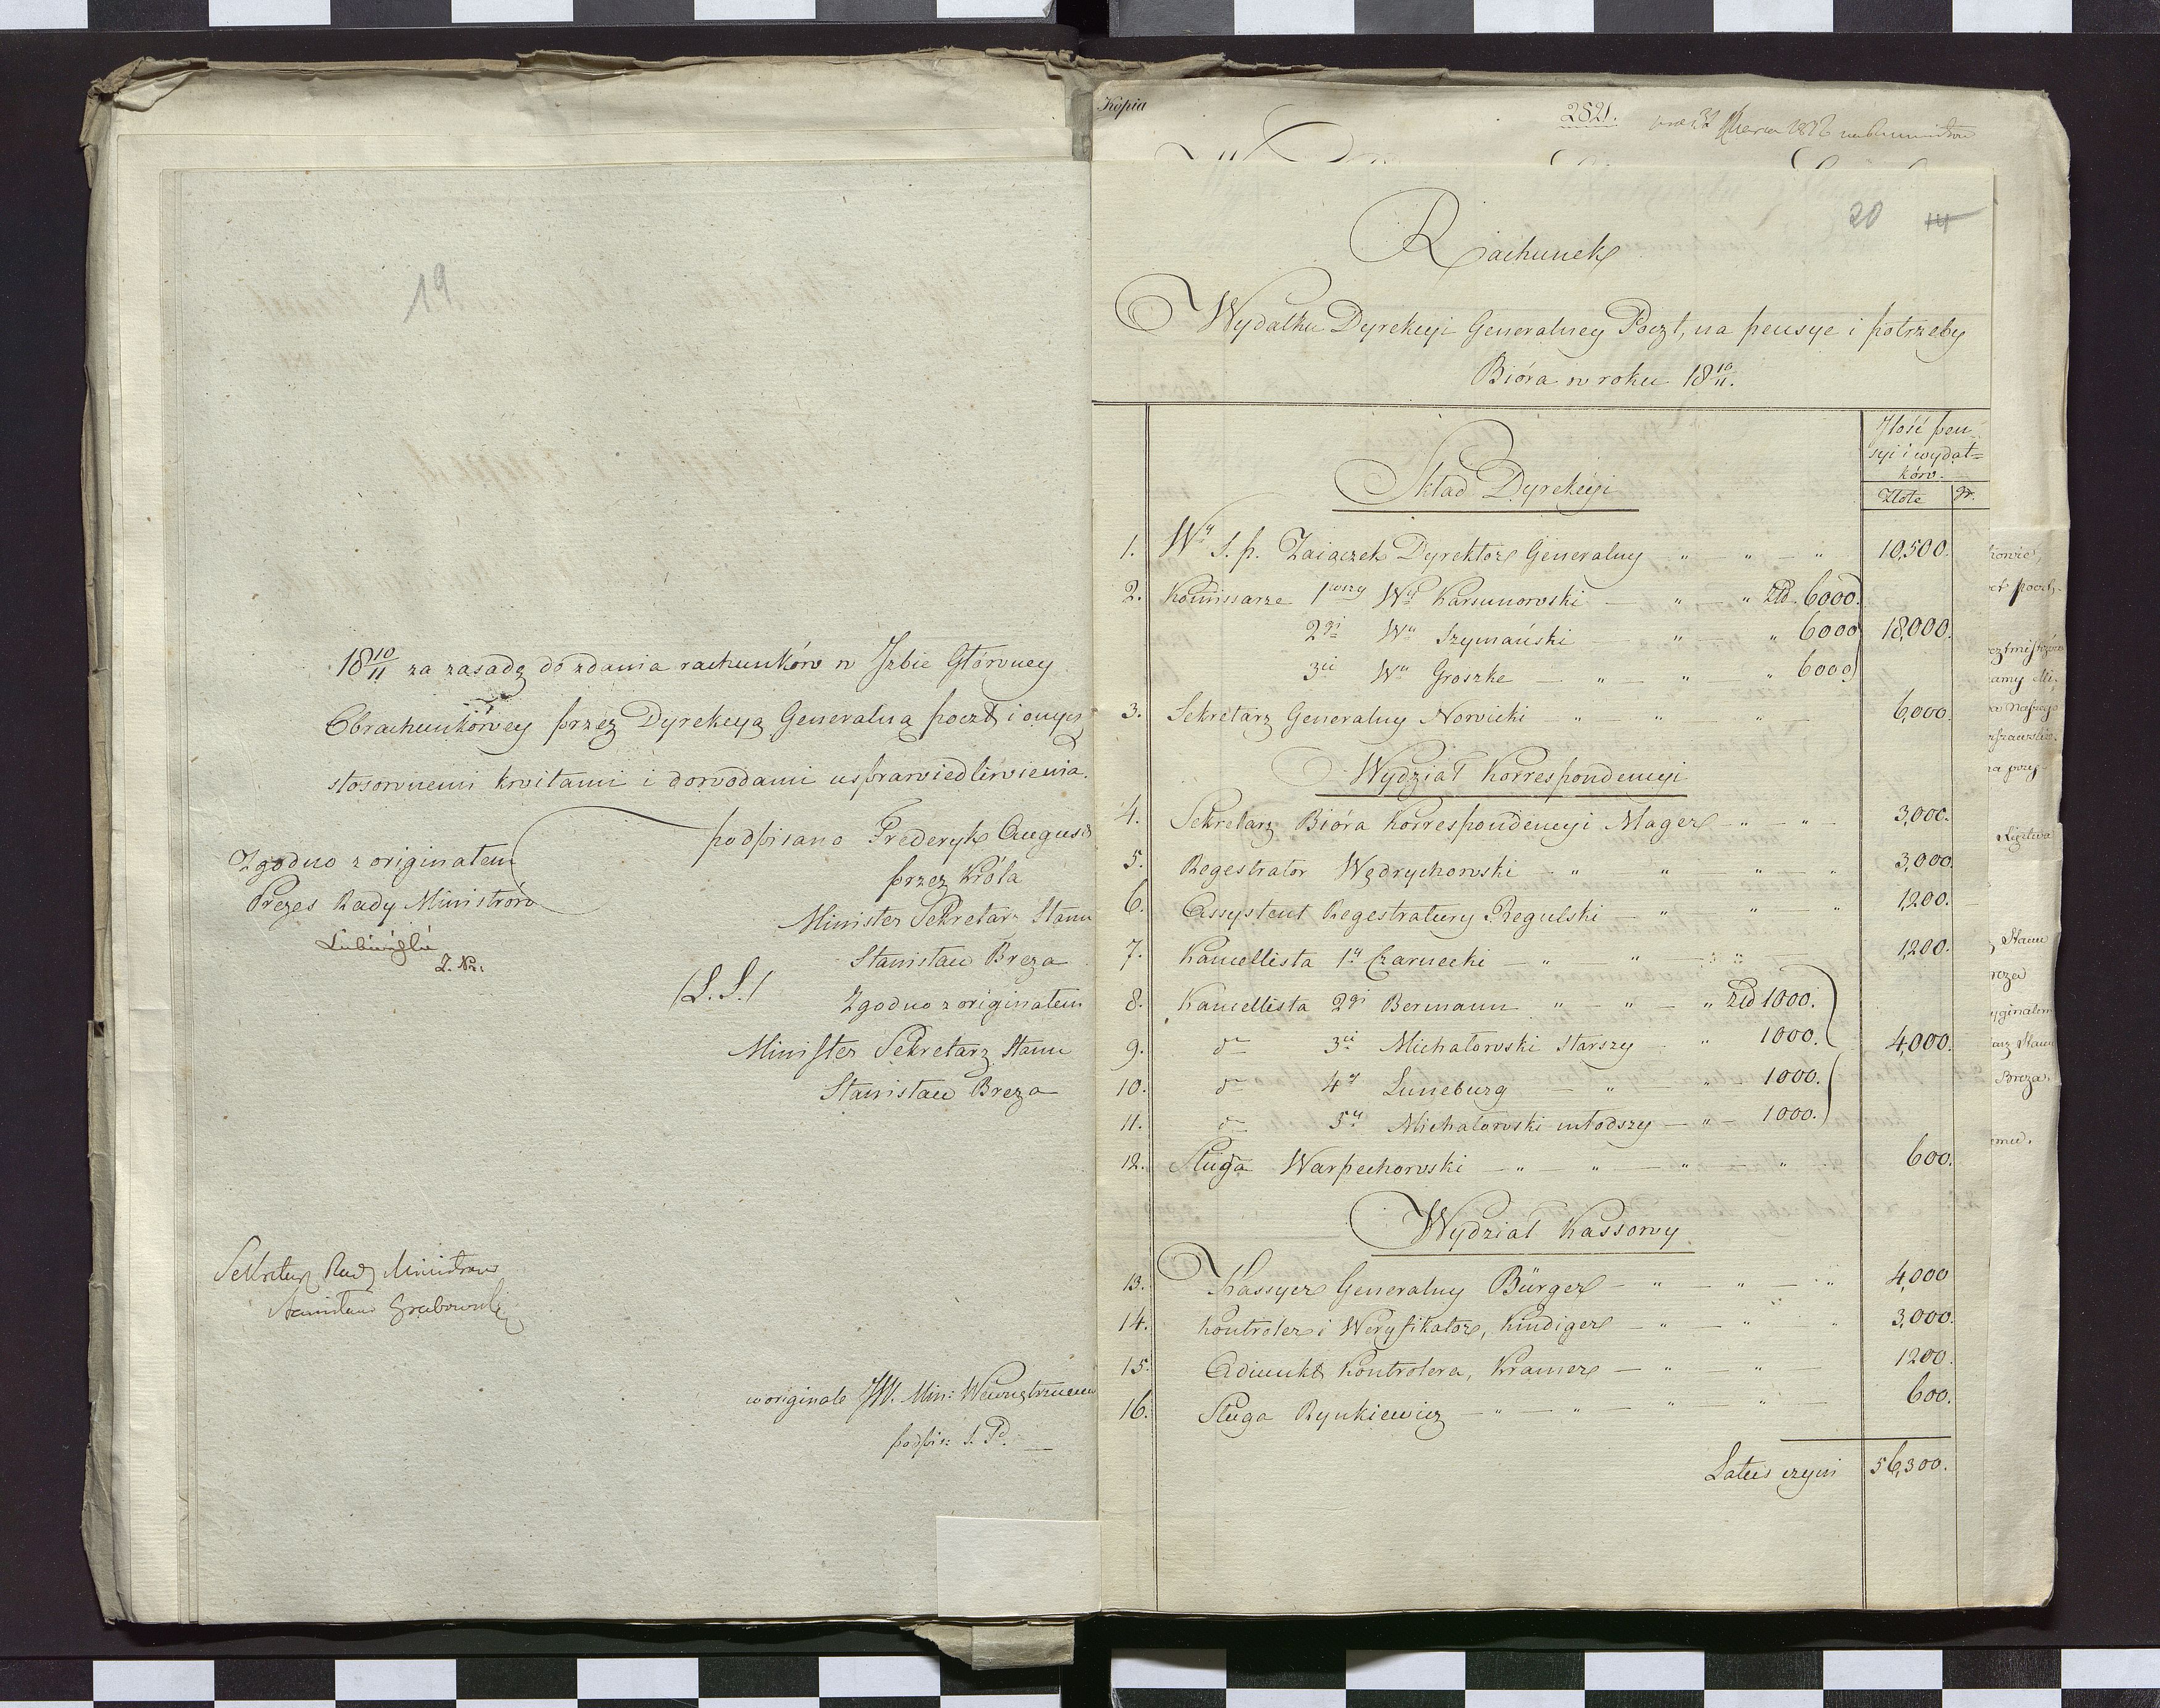 19
18 10/11 za zasadę do zdania rachunków w Jzbie Główney
Obrachunkówey przez Dyrekcyą Generalną poczt i onych
stosownemi kwitami i dowodami usprawiedliwienia.
podpisano Frederyk August
przez Króla
Minister Sekretarz Stanu
Stanisław Breza
(L.S.)
Zgodno z originałem
Minister Sekretarz Stanu
Stanisław Breza
Zgodno z originałem
Prezes Rady Ministrów
Sekretarz Rady Ministrow
Stanisław Grabowski
w originale JW. Min: Wewnętrznem
podpis: J. P.
Kopia
2821.
20 14
Rachunek
Wydatku Dyrekcyi Generalney Poczt, na pensye i potrzeby
Bióra w roku 18 10/11.
Jlość pen-
syi i wydat=
ków.
Złote gr.
Skład Dyrekcyi
1. Wy S. p. Zaiączek Dyrektor Generalny " " — " 10,500.
2. Kommissarze 1wszy Wy Karsunowski — " " Złd. 6000.
2gi Wy Szymański — " — " 6000 18,000.
3ci Wy Groszke — " — " — " 6000
3. Sekretarz Generalny Nowicki — " — " " — 6,000.
Wydział Korrespondencyi
4. Sekretarz Bióra Korrespondencyi Mager — " — " — 3,000.
5. Regestrator Wędrychowski — " " " — " 3,000.
6. Assystent Regestratury Regulski — " " — " 1,200.
7. Kancellista 1y Czarnecki — " " — " — 1,200.
8. Kancellista 2gi Bermann " — " — " Złd 1000.
9. do 3ci Michałowski starszy — " 1000. 4,000.
10. do 4y Luneburg — " — " 1000.
11. do 5y Michałowski młodszy — " — 1000.
12. Sługa Warpechowski — " — " — " — " 600.
Wydział Kassowy
13. Kassyer Generalny Bürger — " — " — " 4,000
14. Kontroler i Weryfikator, Kindiger — " — " " 3,000.
15. Adiunkt Kontrolera, Kramer — " — " — 1200.
16. Sługa Rynkiewicz — " — " — " — " — 600.
Latus czyni 56,300.